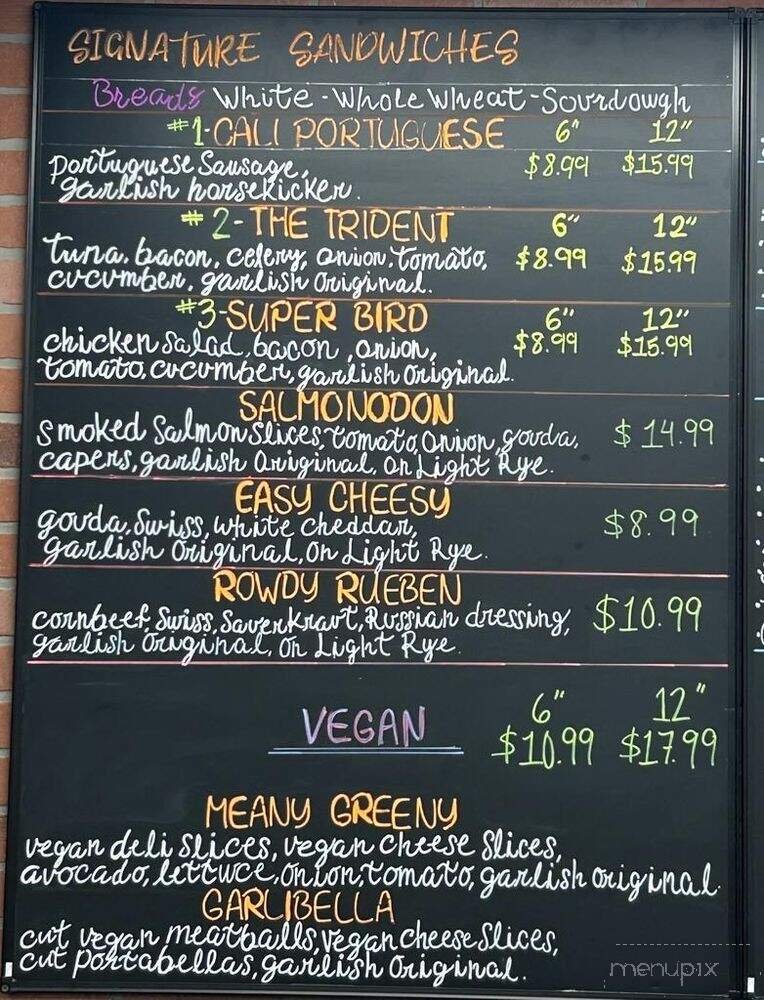 SIGNATURE SANDWICHES
Breads White - Whole Wheat - Sourdough
#1-CALI PORTUGUESE 6" 12"
portuguese Sausage, $8.99 $15.99
garlish horsekicker.
#2-THE TRIDENT 6" 12"
tuna, bacon, celery, onion, tomato, $8.99 $15.99
cucumber, garlish Original.
#3-SUPER BIRD 6" 12"
chicken Salad, bacon, onion, $8.99 $15.99
tomato, cucumber, garlish Original.
SALMONODON
Smoked Salmon Slices, tomato, Onion, gouda, $14.99
capers, garlish Original, On Light Rye.
EASY CHEESY
gouda, Swiss, white cheddar, $8.99
garlish Original, On Light Rye.
ROWDY RUEBEN
cornbeef, Swiss, Saverkraut, Russian dressing, $10.99
garlish Original, On Light Rye.
VEGAN 6" 12"
$10.99 $17.99
MEANY GREENY
vegan deli Slices, vegan cheese Slices,
avocado, lettuce, onion, tomato, garlish original.
GARLIBELLA
cut vegan meatballs, vegan cheese Slices,
cut portabellas, garlish Original.
menupix